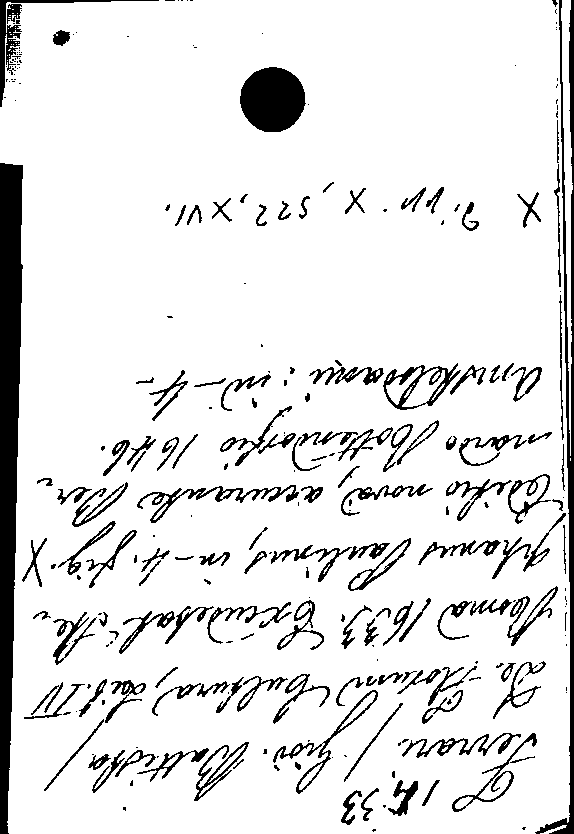 F 14,33
Ferrari / Giov. Battista /
De Florum Cultura, Lib. IV
Roma 1633. Excudebat Ste-
phanus Paulinus, in-4. fig. X
Editio nova, accurante Ber-
nardo Bottendorfio 1646.
Amstelodami: in-4-
X 2. pp. X, 522, XVI.